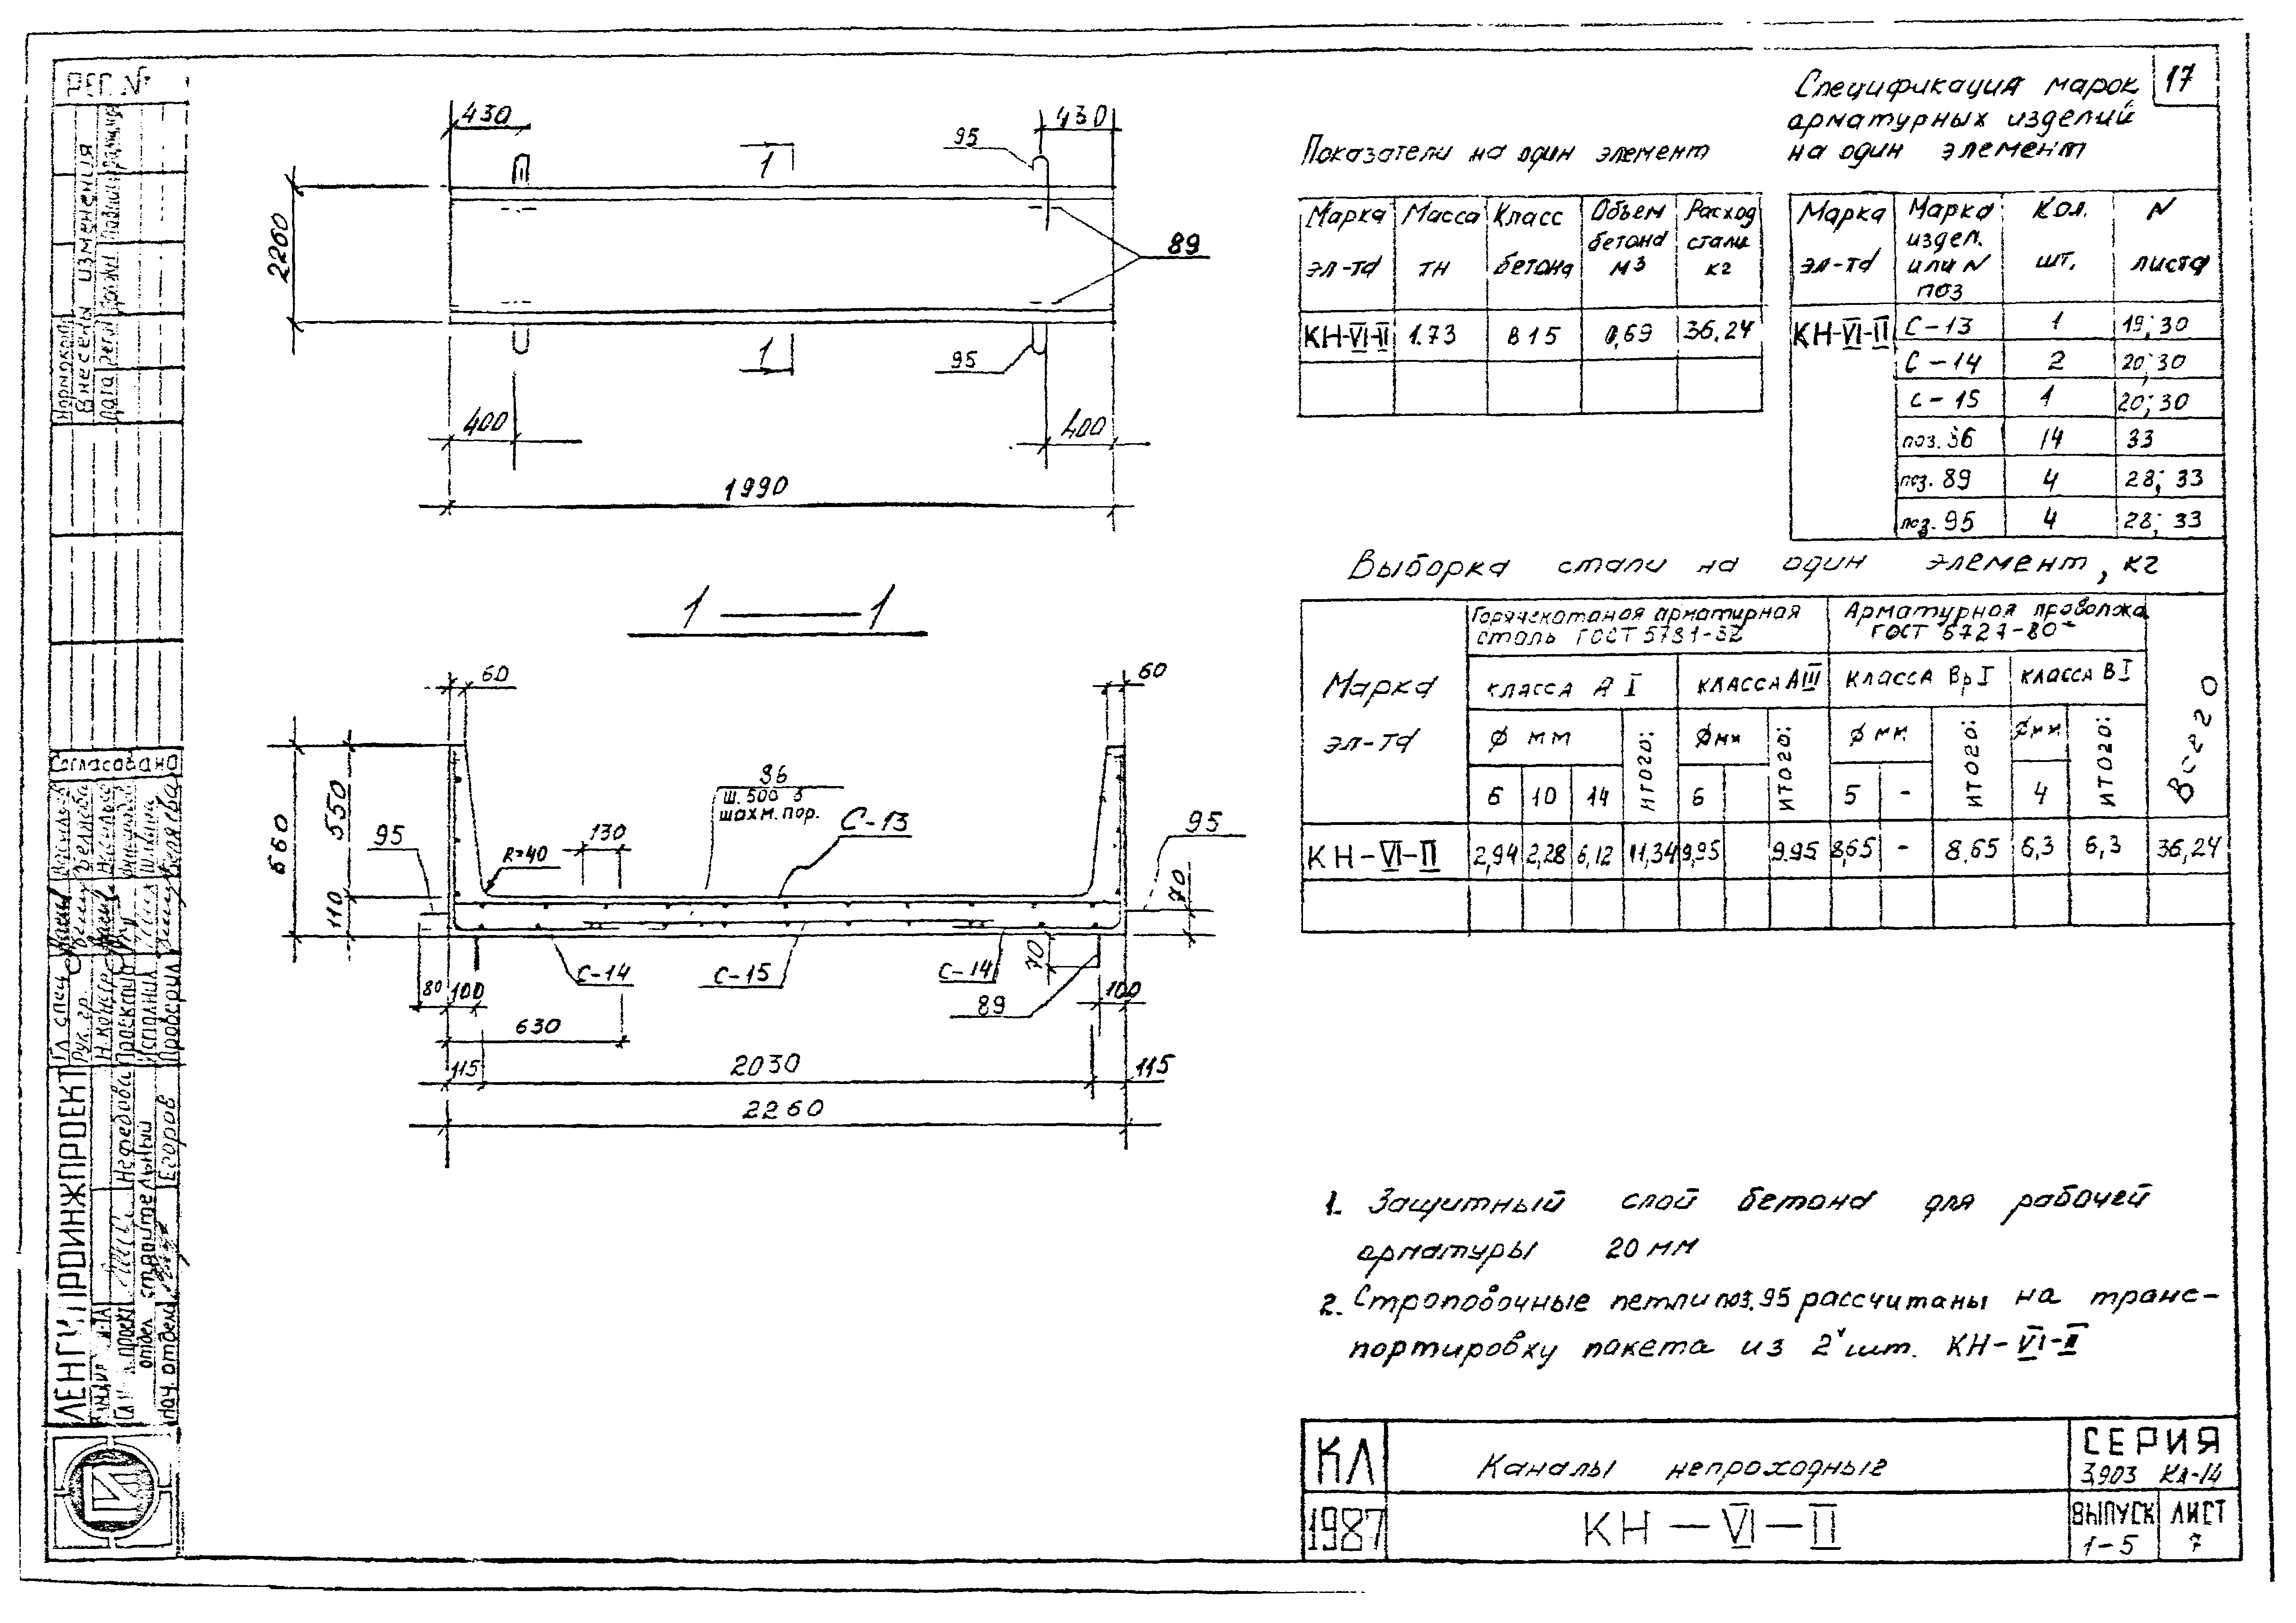 17
Спецификация марок
арматурных изделий
на один элемент
Показатели на один элемент
Марка эл-та | Масса тн | Класс бетона | Объем бетона м3 | Расход стали кг
КН-VI-II | 1.73 | В15 | 0,69 | 36.24
Марка эл-та | Марка издел. или N поз | Кол. шт. | N листа
КН-VI-II | С-13 | 1 | 19; 30
С-14 | 2 | 20; 30
С-15 | 1 | 20; 30
поз. 36 | 14 | 33
поз. 89 | 4 | 28; 33
поз. 95 | 4 | 28; 33
Выборка стали на один элемент, кг
Марка эл-та
Горячекатаная арматурная
сталь ГОСТ 5781-82
Арматурная проволока
ГОСТ 6727-80
Всего
класса А I | класса АIII | класса Вр I | класса В I
Ф мм | итого: | Ф мм | итого: | Ф мм | итого: | Ф мм | итого:
6 | 10 | 14 | 6 | 5 | - | 4
КН-VI-II | 2,94 | 2,28 | 6,12 | 11,34 | 9,95 | 9.95 | 8,65 | - | 8,65 | 6,3 | 6,3 | 36,24
430
430
95
1
2260
89
1
95
400
400
1990
1 — 1
60
60
660
550
110
95
R=40
130
36
ш. 500 в
шахм. пор.
С-13
95
70
С-14
С-15
С-14
70
89
80
100
100
630
115
2030
115
2260
1. Защитный слой бетона для рабочей
арматуры 20 мм
2. Строповочные петли поз. 95 рассчитаны на транс-
портировку пакета из 2х шт. КН-VI-II
КЛ
Каналы непроходные
СЕРИЯ
3.903 КЛ-14
1987
КН-VI-II
ВЫПУСК
1-5
ЛИСТ
7
РЕГ. №
Внесены изменения
Согласовано
Гл. спец
Рук. гр.
Исполнил
Проверил
Беляева
ЛЕНГИПРОИНЖПРОЕКТ
Нефедова
отдел строительный
Нач. отдела
Егоров